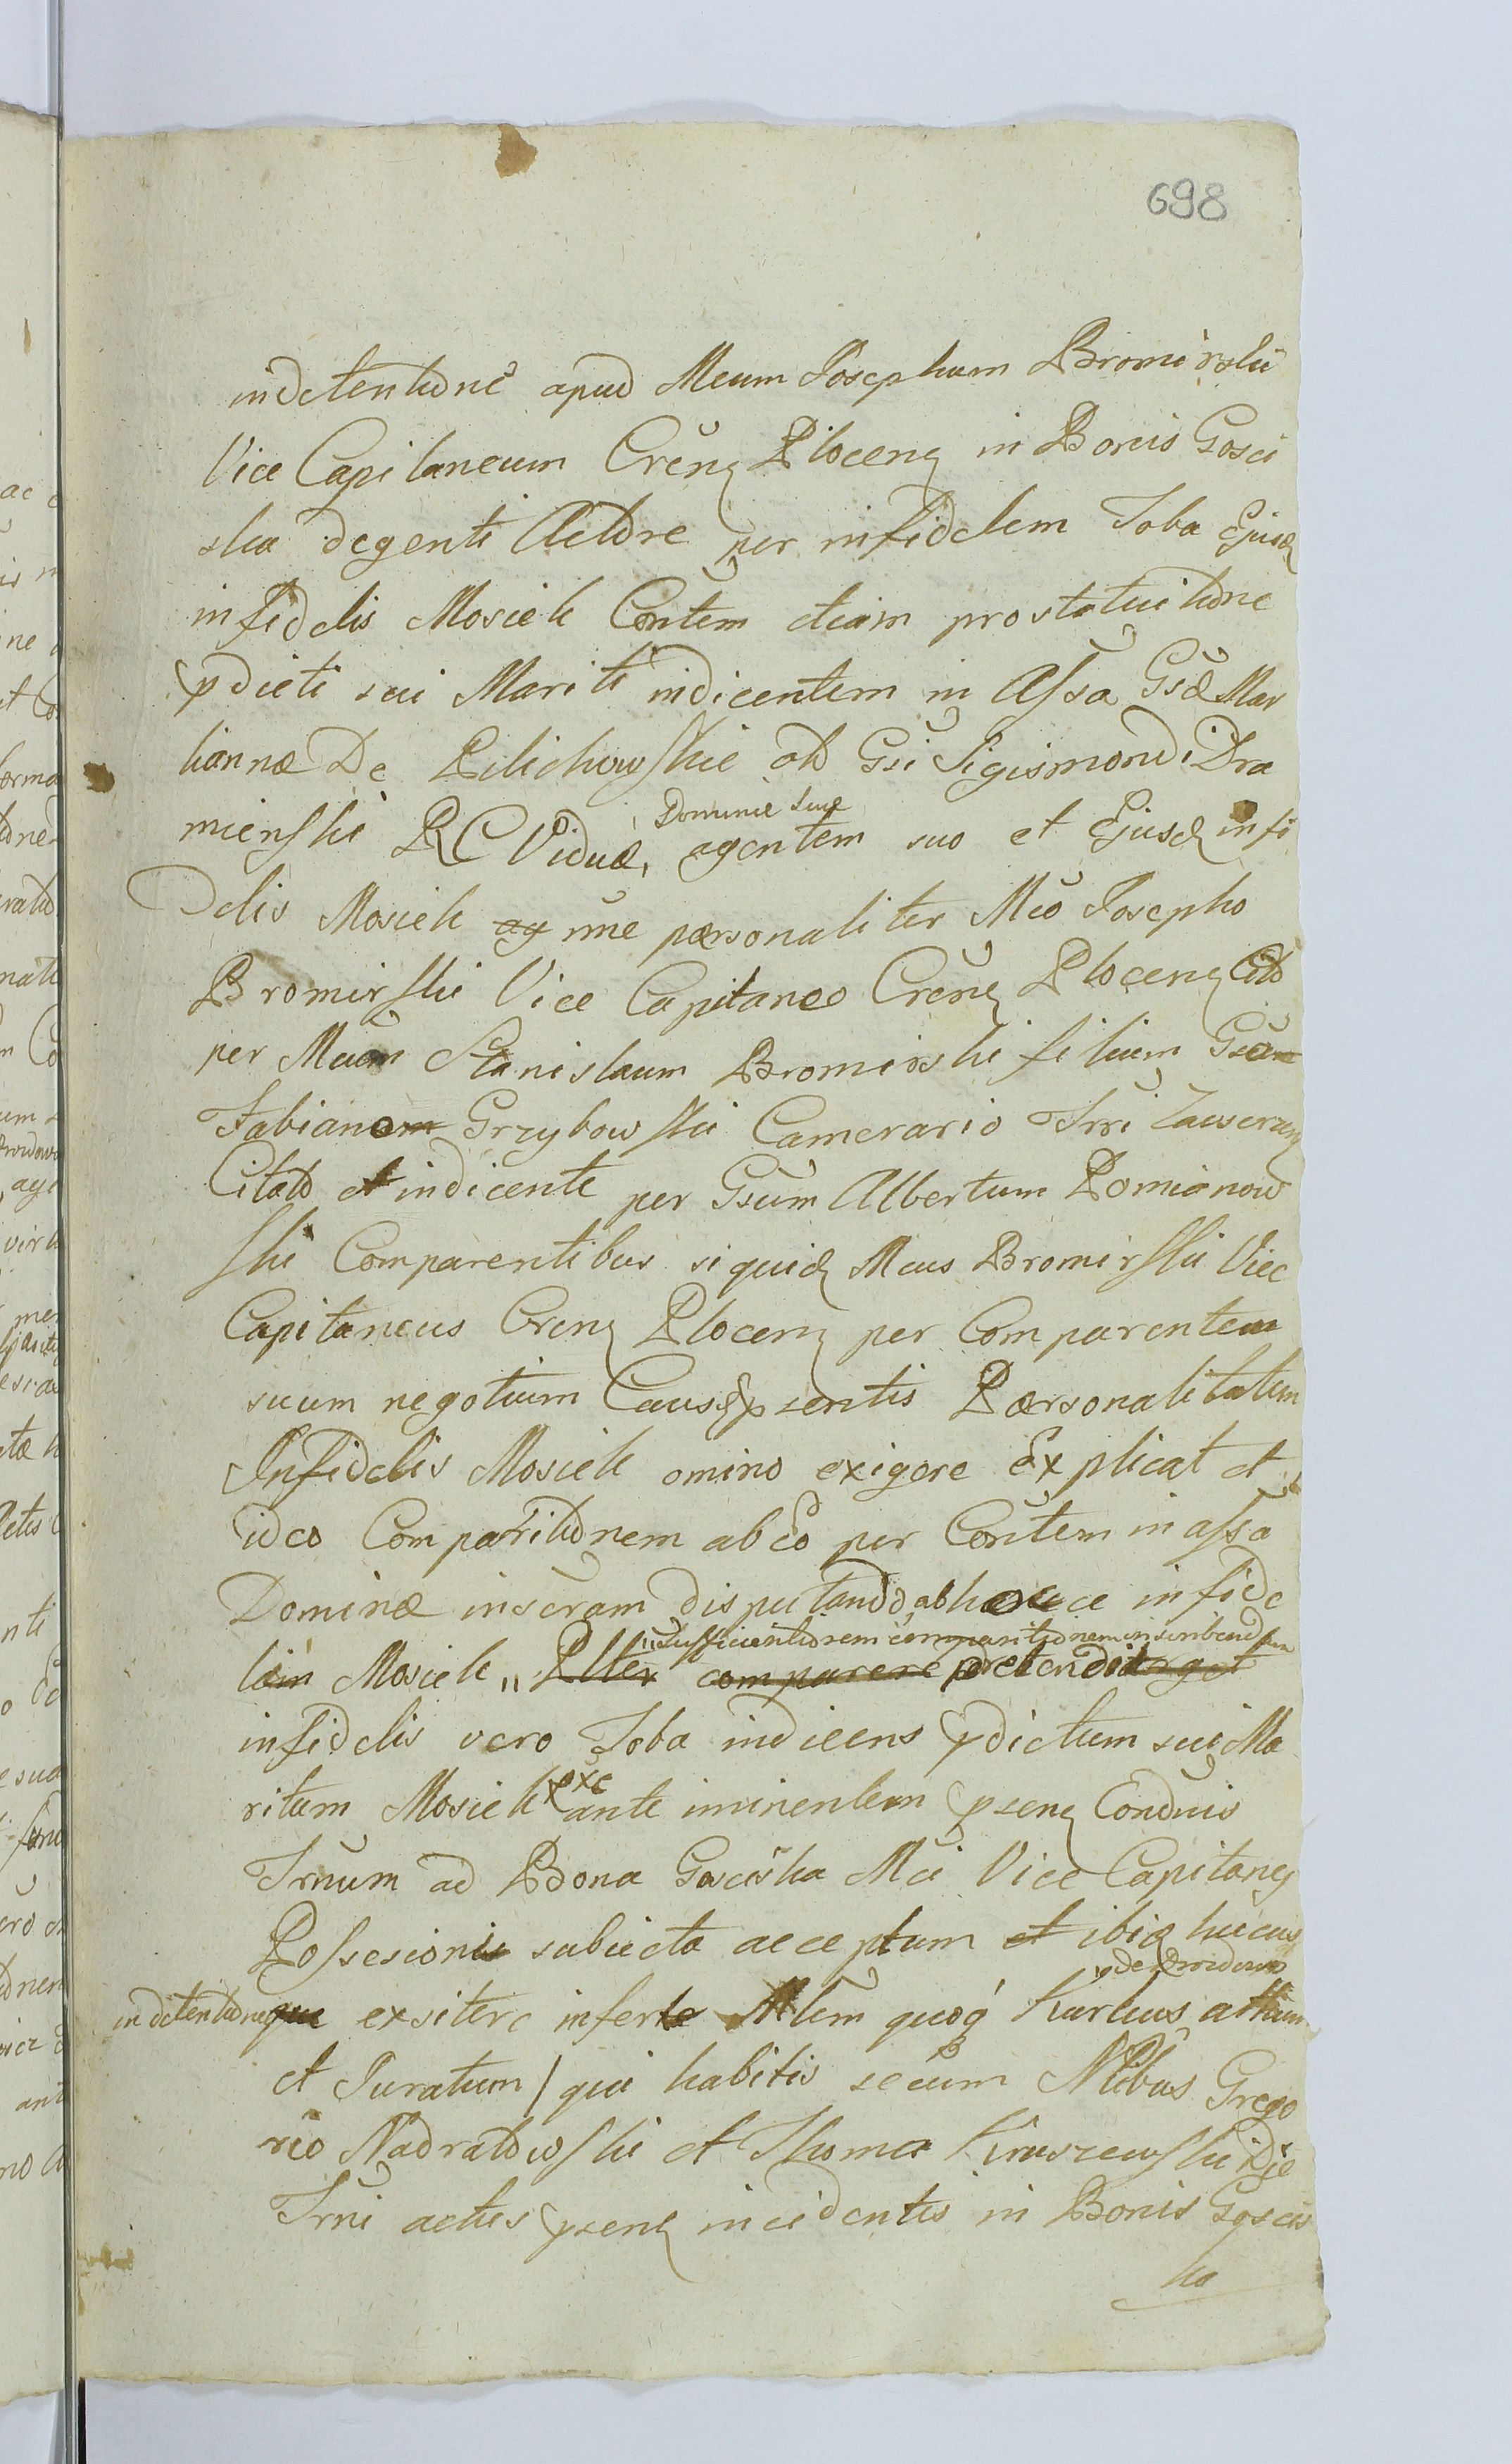 698
indetentione apud Mcum Josephum Bromirski
Vice Capitaneum Creng Ploceng in Bonis Gosci
ska degenti Actore per infidelem Joba Ejusd
infidelis Mosiek Contem etiam pro statuitione
pdicti sui Mariti indicentem in Assa Gsæ Mar
iannæ De Pilichowskie olb Gsi Sigismondi Dra
mienski R C Viduæ, agentem suo et Ejusd infi
Dominæ suæ
delis Mosiek ag nne personaliter Mco Josepho
Bromirski Vice Capitaneo Creng Ploceng Cito
per Mcum Stanislaum Bromirski filium Gsum
Fabianom Grzybowski Camerario Trri Zawserng
Citato et indicente per Gsum Albertum Pomianow
ski Comparentibus siquid Mcus Bromirski Vice
Capitaneus Creng Ploceng per Comparentem
suum negotium Causæ psentis Personalitatem
Infidelis Mosiek omino exigere Explicat et
ideo Comparitionem ab Eo per Contem in assa
Dominæ inseram disputando ab hacce infide
"Sufficientiorem comparitionem inscribend
lem Mosiek " Pltex comparere pretendit
infidelis vero Joba indicens pdictum sui Ma
ritum Mosiek exe ante iminentem pseng Condnis
Trnum ad Bona Gosciska Mci Vice Capitanej
Possesionis subiecta acceptum et ibiq hucus
de Drwdowo
in detentione que exsitere inferte Mlem quoq Kurkus attum
et Juratum / qui habitis secum Nlibus Grego
rio Nadratowski et Thoma Kruszewski Die
Trni actus pseng incidentis in Bonis Goscis
ka